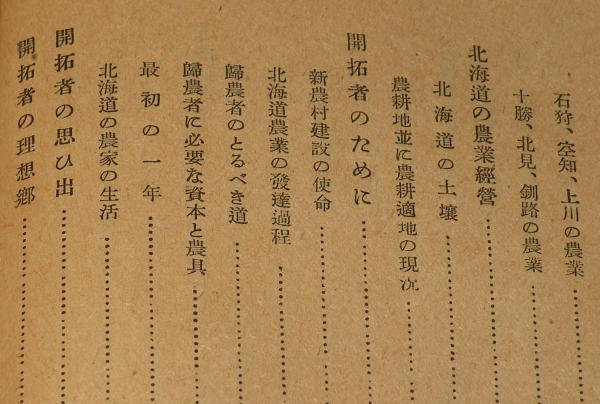 石狩、空知、上川の農業
十勝、北見、釧路の農業
北海道の農業經營
北海道の土壤
農耕地並に農耕適地の現況
開拓者のために
新農村建設の使命
北海道農業の發達過程
歸農者のとるべき道
歸農者に必要な資本と農具
最初の一年
北海道の農家の生活
開拓者の思ひ出
開拓者の理想鄕